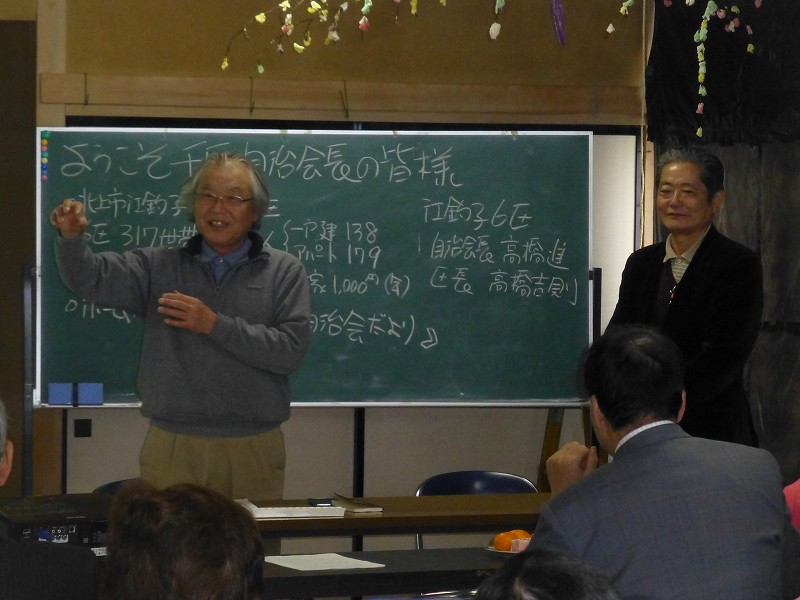 ようこそ千 自治会長の皆様
北上市江釣子 区
区 317世帯 一戸建 138
アパート 179
1,000円
自治会だより』
江釣子6区
自治会長 高橋進
区長 高橋吉則